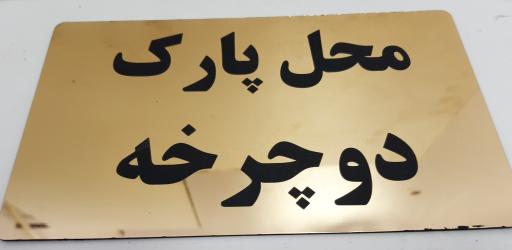 محل پارک
دوچرخه